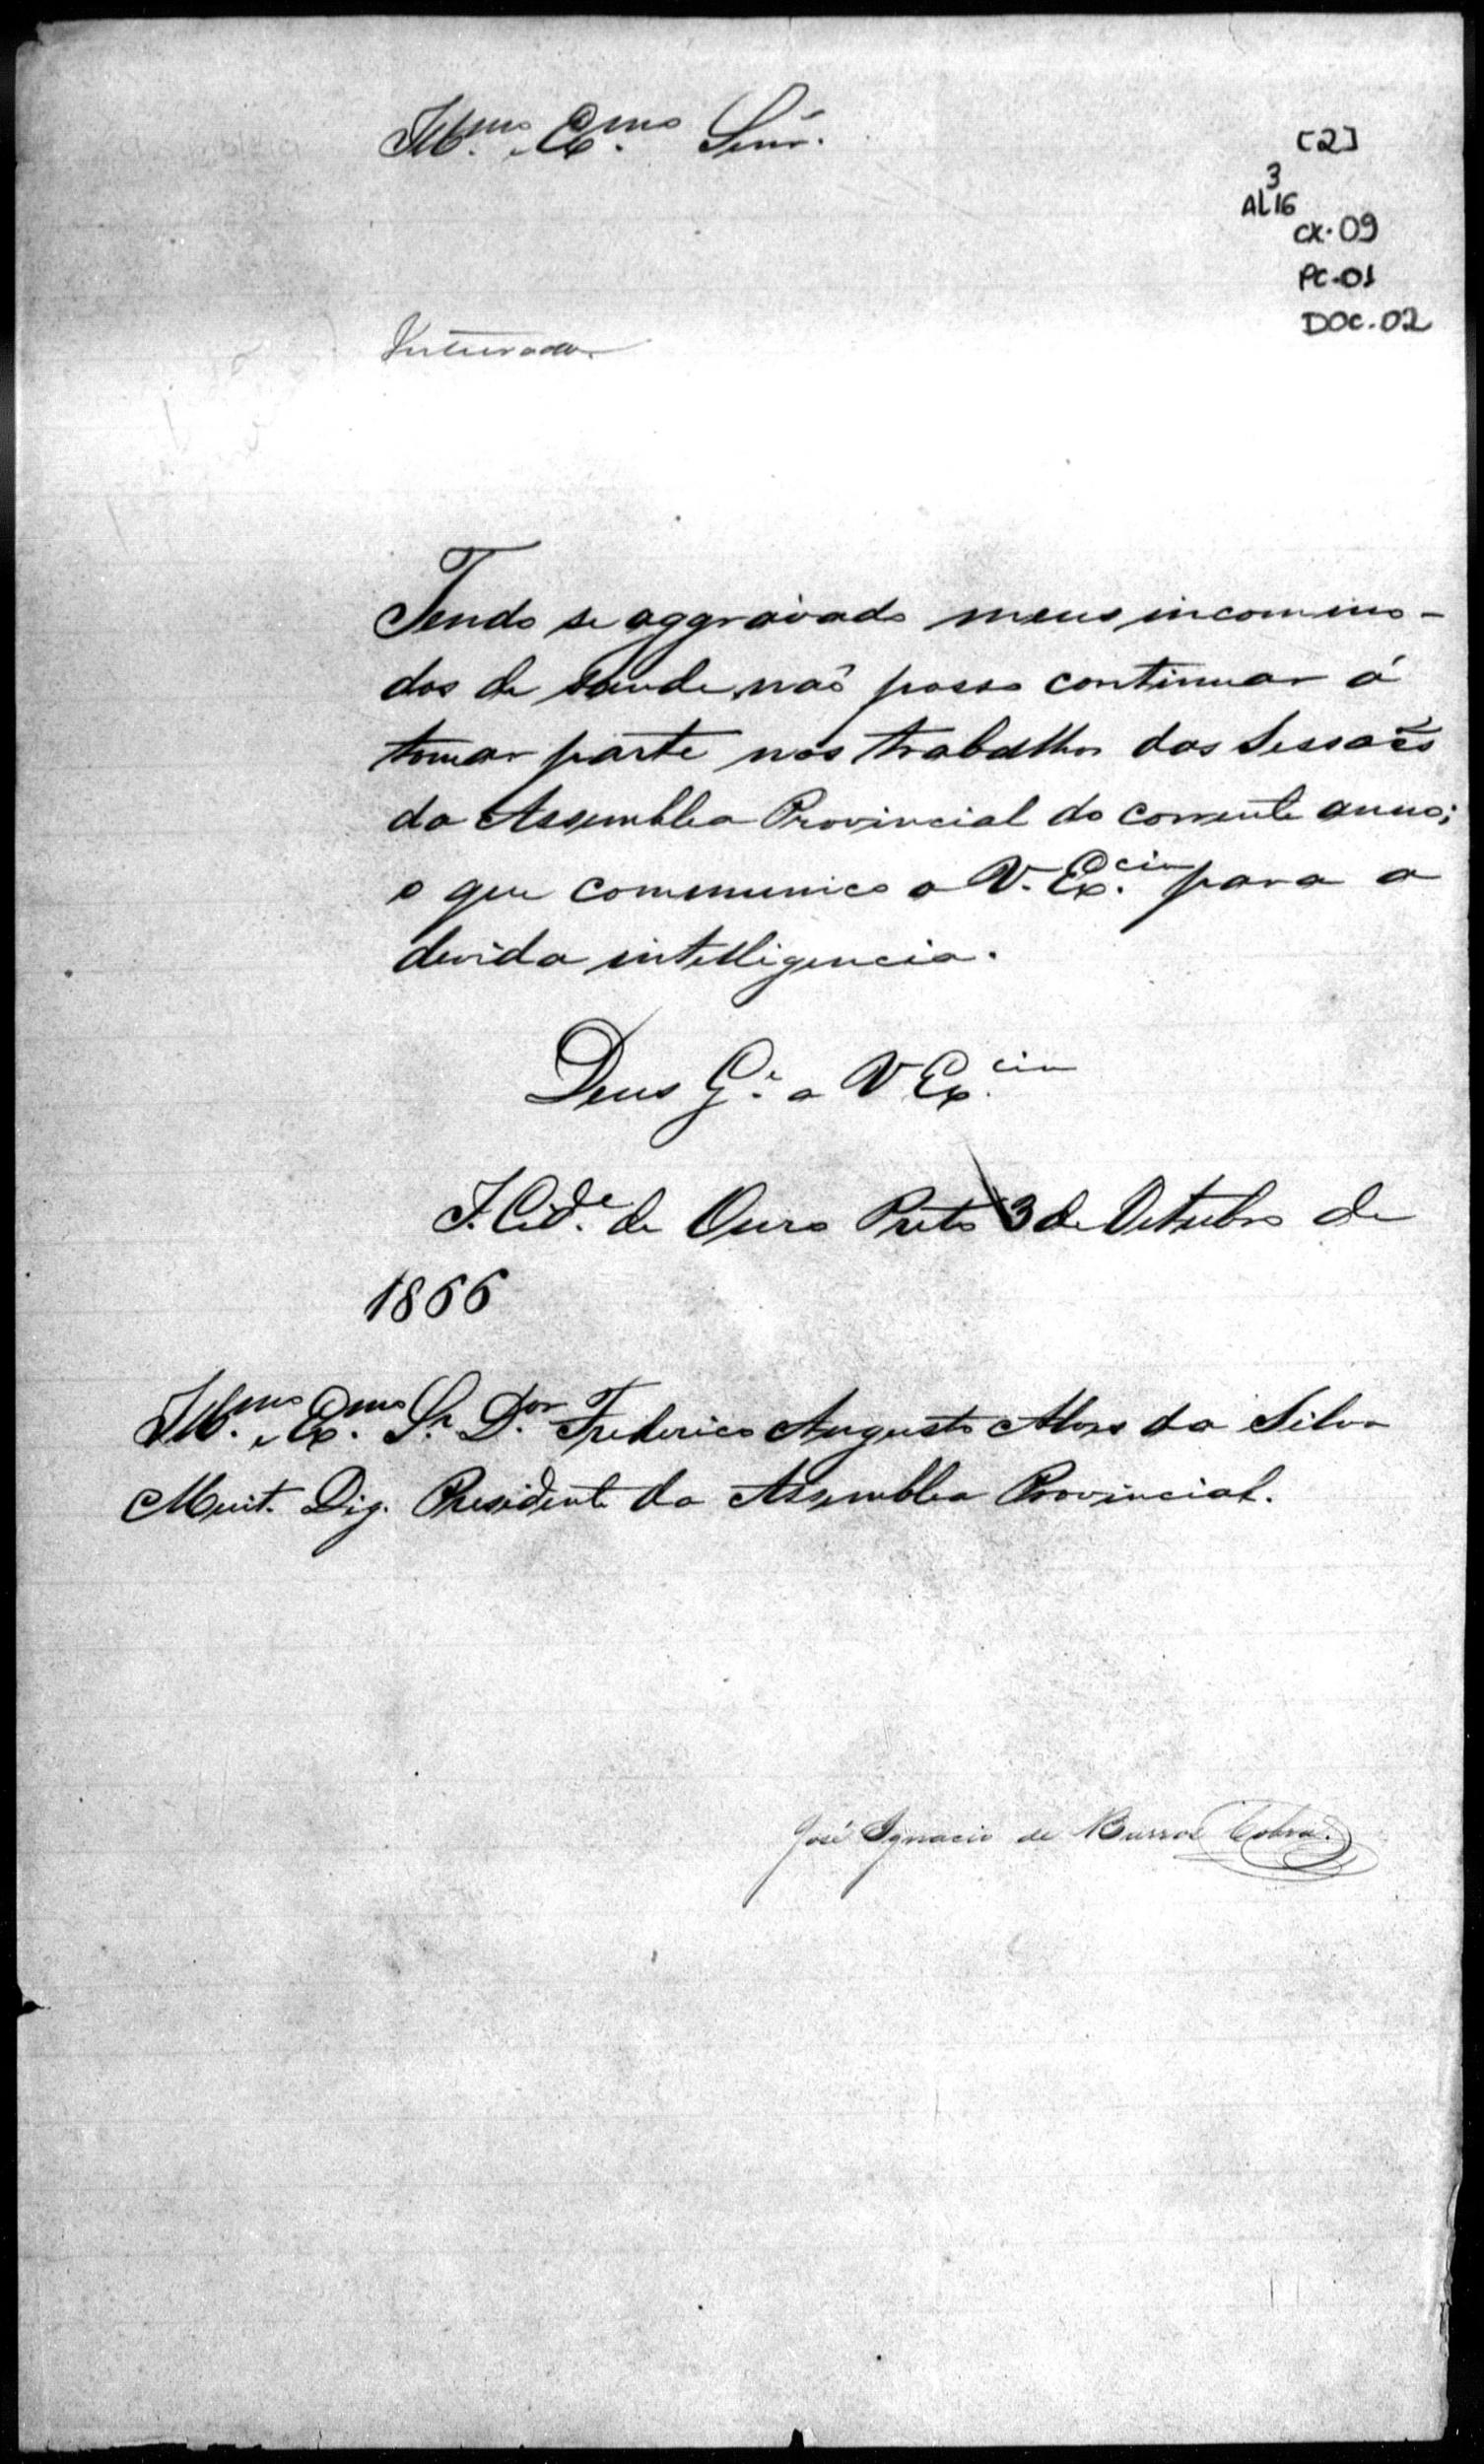 Ill.mo e Ex.mo Senr.
[2]
3
AL16
CX. 09
PC-01
DOC. 02
Inteirada.
Tendo se aggravado meus incommo-
dos de saude, naõ posso continuar á
tomar parte nos trabalhos das Sessaões
da Assemblea Provincial do corrente anno;
o que communico a V. Ex.cia para a
devida intelligencia.
Deus G.e a V Ex.cia
I. Cid.e de Ouro Preto 3 de Outubro de
1866
Ill.mo e Ex.mo Sr. D.or Frederico Augusto Alvares da Silva
Muit. Dig. Presidente da Assemblea Provincial.
José Ignacio de Barros Cobra.